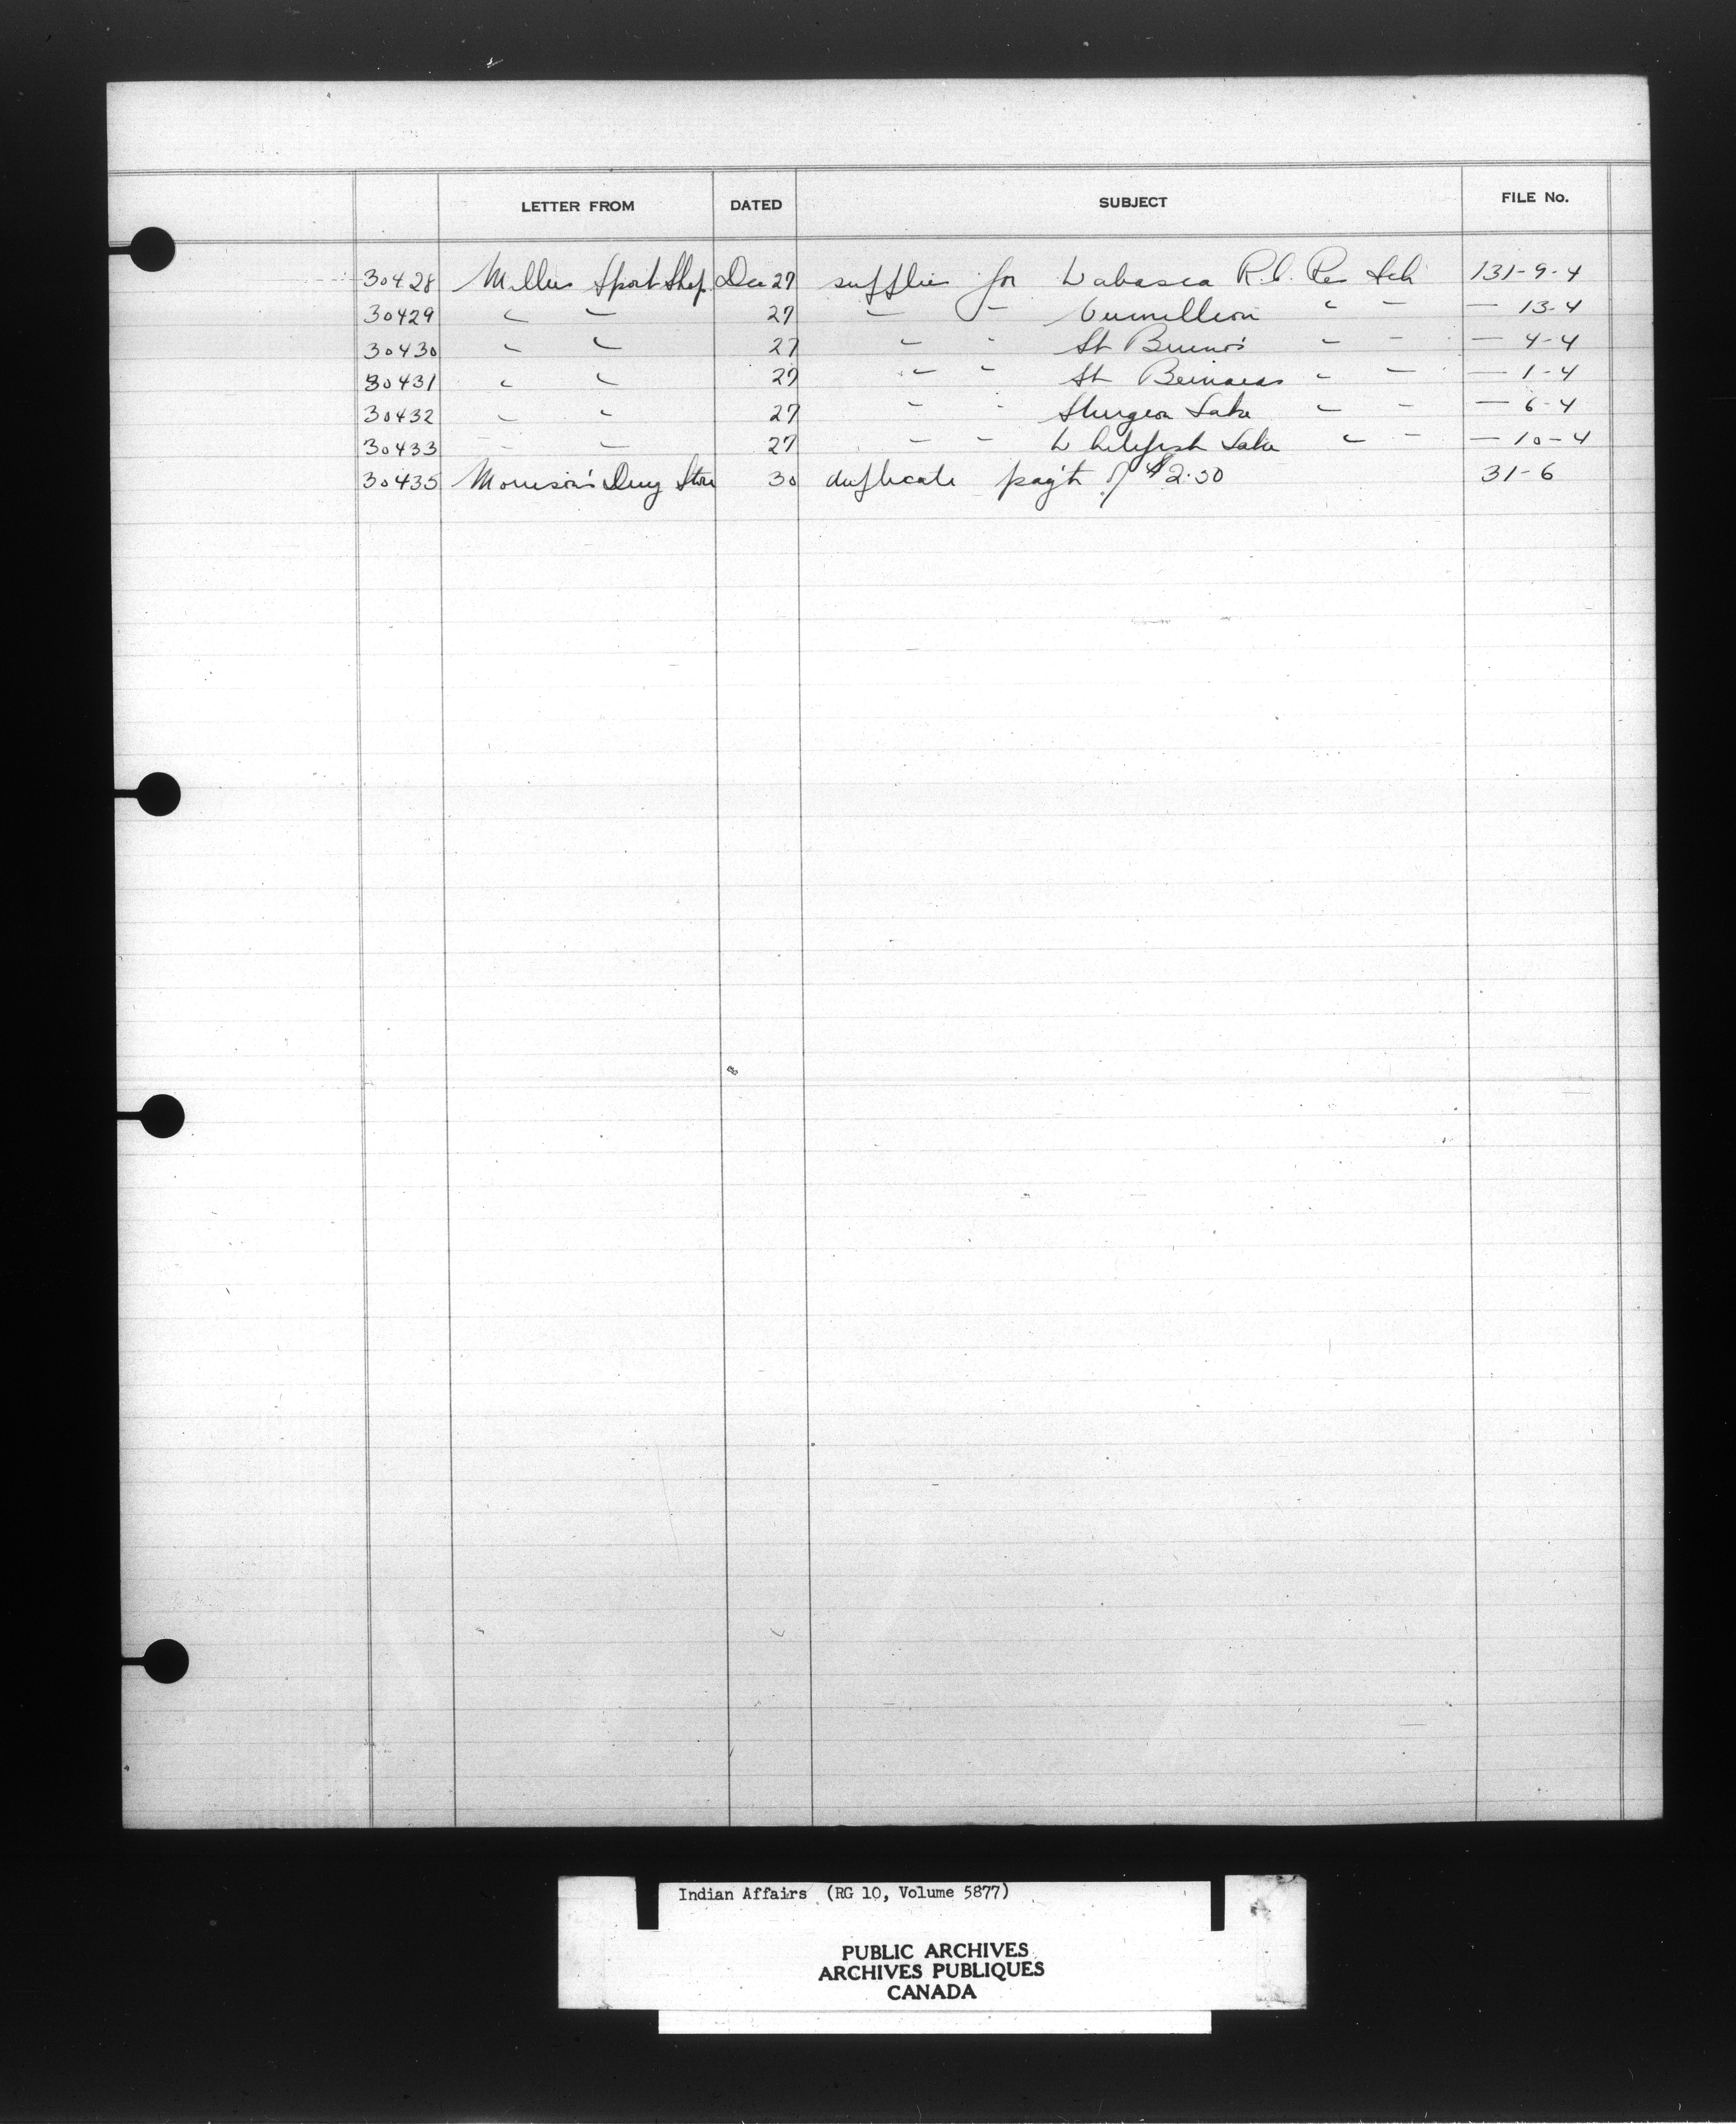 LETTER FROM DATED SUBJECT FILE No.
30428 Millers Sport Shop Dec 27 supplies for Wabasca R.C. Res Sch 131-9-4
30429 " " 27 " " Vermillion " " — 13-4
30430 " " 27 " " St Bruno's " " — 4-4
30431 " " 27 " " St Bernards " " — 1-4
30432 " " 27 " " Sturgeon Lake " " — 6-4
30433 " " 27 " " Whitefish Lake " " — 10-4
30435 Morrison's Drug Store 30 duplicate pay't of $2.50 31-6
Indian Affairs (RG 10, Volume 5877)
PUBLIC ARCHIVES
ARCHIVES PUBLIQUES
CANADA